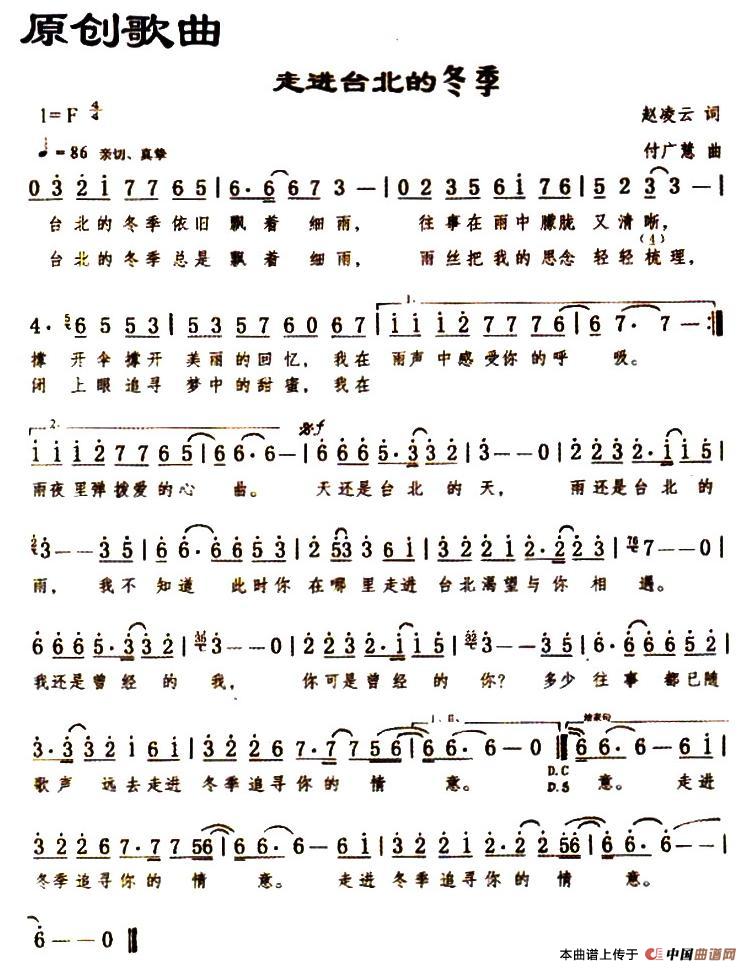 原创歌曲
走进台北的冬季
1=F 4/4
赵凌云 词
♩=86 亲切、真挚
付广慧 曲
0 3 2 1 7 7 6 5 | 6· 6 6 7 3 — | 0 2 3 5 6 1 7 6 | 5 2 3 3 — |
台北的冬季依旧 飘着 细雨， 往事在雨中朦胧 又清晰，
(4)
台北的冬季总是 飘着 细雨， 雨丝把我的思念 轻轻梳理，
1.
4· 6 5 5 3 | 5 3 5 7 6 0 6 7 | 1 1 1 2 7 7 7 6 | 6 7· 7 — :|
撑 开伞撑开 美丽的回忆，我在 雨声中感受你的呼 吸。
闭 上眼追寻 梦中的甜蜜，我在
2. f
1 1 1 2 7 7 6 5 | 6 6· 6 — | 6 6 6 5· 3 3 2 | 3 — — 0 | 2 2 3 2· 1 1 5 |
雨夜里弹拨爱的心 曲。 天还是台北 的天， 雨还是台北的
3 — — 3 5 | 6 6· 6 6 5 3 | 2 5 3 3 6 1 | 3 2 2 1 2· 2 2 3 | 7 — — 0 |
雨， 我不 知道 此时你 在哪里走进 台北渴望与你 相 遇。
6 6 6 5· 3 3 2 | 3 — — 0 | 2 2 3 2· 1 1 5 | 3 — — 3 5 | 6 6· 6 6 5 2 |
我还是曾经 的 我， 你可是曾经 的 你？ 多少 往事 都已随
1、Ⅱ. 结束句
3· 3 3 2 1 6 1 | 3 2 2 6 7· 7 7 5 6 | 6 6· 6 — 0 | 6 6· 6 — 6 1 |
歌声 远去走进 冬季追寻你的 情 意。 意。 走进
D.C
D.S
3 2 2 6 7· 7 7 5 6 | 6 6· 6 — 6 1 | 3 2 2 1 2· 1 1 5 6 | 6 6· 6 — |
冬季追寻你的 情 意。 走进 冬季追寻你的 情 意。
6 — — 0 ‖
本曲谱上传于 中国曲谱网